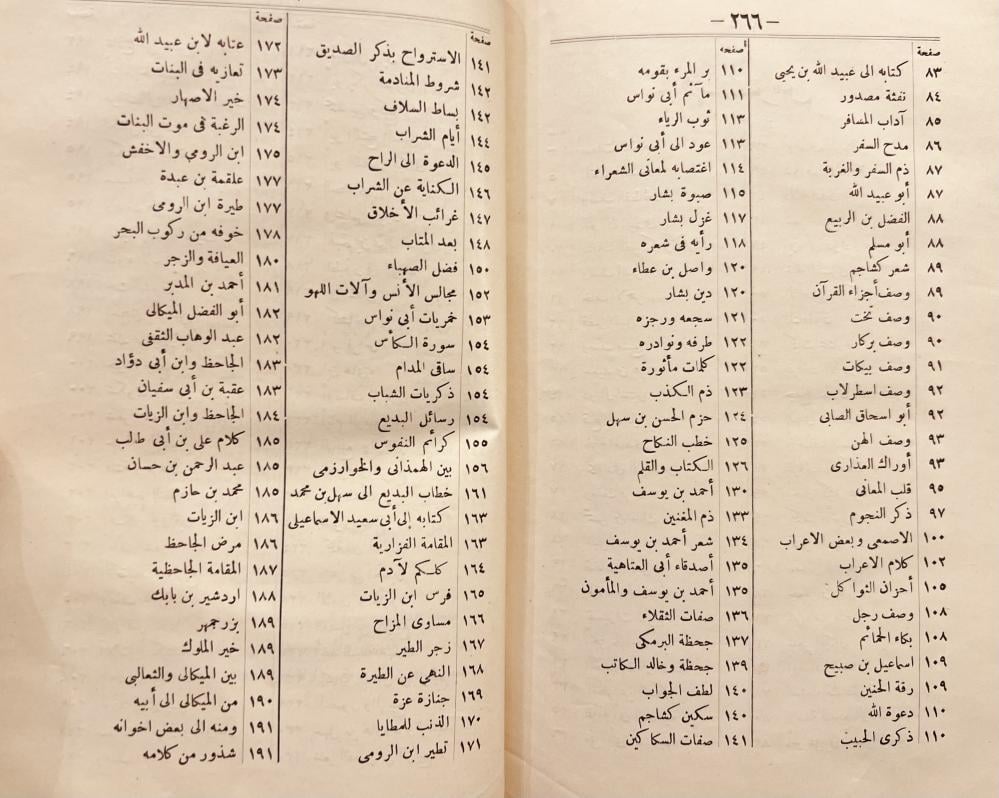 — ٢٦٦ —
صفحة
٨٣ كتابه الى عبيد الله بن يحيى
٨٤ نفثة مصدور
٨٥ آداب المسافر
٨٦ مدح السفر
٨٧ ذم السفر والغربة
٨٧ أبو عبيد الله
٨٨ الفضل بن الربيع
٨٨ أبو مسلم
٨٩ شعر كشاجم
٨٩ وصف أجزاء القرآن
٩٠ وصف تخت
٩٠ وصف بركار
٩١ وصف بيكات
٩٢ وصف اسطرلاب
٩٢ أبو اسحاق الصابى
٩٣ وصف الهن
٩٣ أوراك العذارى
٩٥ قلب المعانى
٩٧ ذكر النجوم
١٠٠ الاصمعى وبعض الاعراب
١٠٢ كلام الاعراب
١٠٥ أحزان الثواكل
١٠٨ وصف رجل
١٠٨ بكاء الحمائم
١٠٩ اسماعيل بن صبيح
١٠٩ رقة الحنين
١١٠ دعوة الله
١١٠ ذكرى الحبيب
صفحه
١١٠ بر المرء بقومه
١١١ مآثم أبى نواس
١١٣ ثوب الرياء
١١٣ عود الى أبى نواس
١١٤ اغتصابه لمعانى الشعراء
١١٥ صبوة بشار
١١٧ غزل بشار
١١٨ رأيه فى شعره
١٢٠ واصل بن عطاء
١٢٠ دين بشار
١٢١ سجعه ورجزه
١٢٢ طرفه ونوادره
١٢٢ كلمات مأثورة
١٢٣ ذم الكذب
١٢٤ حزم الحسن بن سهل
١٢٥ خطب النكاح
١٢٦ الكتاب والقلم
١٣٠ أحمد بن يوسف
١٣٣ ذم المغنين
١٣٤ شعر أحمد بن يوسف
١٣٥ أصدقاء أبى العتاهية
١٣٥ أحمد بن يوسف والمأمون
١٣٦ صفات الثقلاء
١٣٧ جحظة البرمكى
١٣٩ جحظة وخالد الكاتب
١٤٠ لطف الجواب
١٤٠ سكين كشاجم
١٤١ صفات السكاكين
صفحة
١٤١ الاسترواح بذكر الصديق
١٤٢ شروط المنادمة
١٤٢ بساط السلاف
١٤٤ أيام الشراب
١٤٥ الدعوة الى الراح
١٤٦ الكناية عن الشراب
١٤٧ غرائب الأخلاق
١٤٨ بعد المتاب
١٥٠ فضل الصهباء
١٥٢ مجالس الأنس وآلات اللهو
١٥٣ خمريات أبى نواس
١٥٤ سورة الكأس
١٥٤ ساقى المدام
١٥٤ ذكريات الشباب
١٥٤ رسائل البديع
١٥٥ كرائم النفوس
١٥٦ بين الهمذانى والخوارزمى
١٦١ خطاب البديع الى سهل بن محمد
١٦٣ كتابه إلى أبى سعيد الاسماعيلى
١٦٣ المقامة الفزارية
١٦٤ كلكم لآدم
١٦٥ فرس ابن الزيات
١٦٦ مساوى المزاح
١٦٧ زجر الطير
١٦٨ النهى عن الطيرة
١٦٩ جنازة عزة
١٧٠ الذنب للمطايا
١٧١ تطير ابن الرومى
صفحة
١٧٢ عتابه لابن عبيد الله
١٧٣ تعازيه فى البنات
١٧٤ خير الاصهار
١٧٤ الرغبة فى موت البنات
١٧٥ ابن الرومي والاخفش
١٧٧ علقمة بن عبدة
١٧٧ طيرة ابن الرومى
١٧٨ خوفه من ركوب البحر
١٨٠ العيافة والزجر
١٨١ أحمد بن المدبر
١٨٢ أبو الفضل الميكالى
١٨٢ عبد الوهاب الثقفى
١٨٣ الجاحظ وابن أبى دؤاد
١٨٣ عقبة بن أبى سفيان
١٨٤ الجاحظ وابن الزيات
١٨٥ كلام على بن أبى طالب
١٨٥ عبد الرحمن بن حسان
١٨٥ محمد بن حازم
١٨٦ ابن الزيات
١٨٦ مرض الجاحظ
١٨٧ المقامة الجاحظية
١٨٨ اردشير بن بابك
١٨٩ بزرجمهر
١٨٩ خير الملوك
١٨٩ بين الميكالى والثعالبى
١٩٠ من الميكالى الى أبيه
١٩١ ومنه الى بعض اخوانه
١٩١ شذور من كلامه